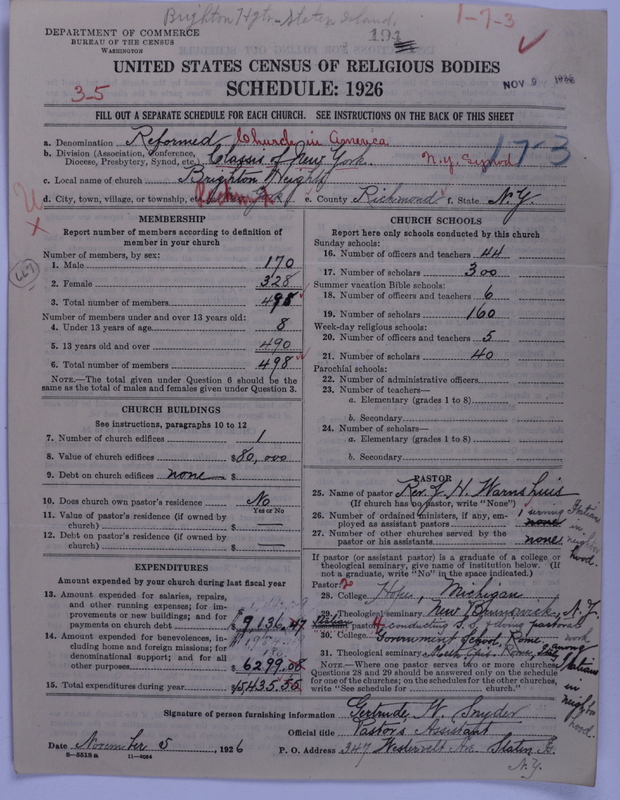 Brighton Hgts - Staten Island.
1-7-3
191
DEPARTMENT OF COMMERCE
BUREAU OF THE CENSUS
WASHINGTON
UNITED STATES CENSUS OF RELIGIOUS BODIES
SCHEDULE: 1926
NOV 9 1926
3-5
FILL OUT A SEPARATE SCHEDULE FOR EACH CHURCH. SEE INSTRUCTIONS ON THE BACK OF THIS SHEET
a. Denomination Reformed Church in America
b. Division (Association, Conference, Diocese, Presbytery, Synod, etc.) Classis of New York. N.Y. Synod
17-3
c. Local name of church Brighton Heights
d. City, town, village, or township, etc. e. County Richmond f. State N.Y.
MEMBERSHIP
Report number of members according to definition of
member in your church
Number of members, by sex:
1. Male 170
2. Female 328
3. Total number of members 498
Number of members under and over 13 years old:
4. Under 13 years of age 8
5. 13 years old and over 490
6. Total number of members 498
NOTE.—The total given under Question 6 should be
the same as the total of males and females given under Question 3.
667
CHURCH BUILDINGS
See instructions, paragraphs 10 to 12
7. Number of church edifices 1
8. Value of church edifices $80,000
9. Debt on church edifices none $
10. Does church own pastor's residence No
Yes or No
11. Value of pastor's residence (if owned by
church) $ —
12. Debt on pastor's residence (if owned by
church) $ —
EXPENDITURES
Amount expended by your church during last fiscal year
13. Amount expended for salaries, repairs,
and other running expenses; for im-
provements or new buildings; and for
payments on church debt $9136.47
14. Amount expended for benevolences, in-
cluding home and foreign missions; for
denominational support; and for all
other purposes $6299.08
15. Total expenditures during year $15,435.55
CHURCH SCHOOLS
Report here only schools conducted by this church
Sunday schools:
16. Number of officers and teachers 44
17. Number of scholars 300
Summer vacation Bible schools:
18. Number of officers and teachers 6
19. Number of scholars 160
Week-day religious schools:
20. Number of officers and teachers 5
21. Number of scholars 40
Parochial schools:
22. Number of administrative officers
23. Number of teachers—
a. Elementary (grades 1 to 8)
b. Secondary
24. Number of scholars—
a. Elementary (grades 1 to 8)
b. Secondary
PASTOR
25. Name of pastor Rev. J. H. Warnshuis
(If church has no pastor, write "None")
26. Number of ordained ministers, if any, em-
ployed as assistant pastors none 1 among Italians in neighborhood.
27. Number of other churches served by the
pastor or his assistants none
If pastor (or assistant pastor) is a graduate of a college or
theological seminary, give name of institution below. (If
not a graduate, write "No" in the space indicated.)
Pastor:
28. College Hope, Michigan
29. Theological seminary New Brunswick, N.J.
Italian pastor conducting S.S. & doing pastoral work among Italians in neighborhood.
30. College Government School, Rome
31. Theological seminary Rome, Italy
NOTE.—Where one pastor serves two or more churches,
Questions 28 and 29 should be answered only on the schedule
for one of the churches; on the schedules for the other churches,
write "See schedule for church."
Signature of person furnishing information Gertrude N. Snyder
Official title Pastor's Assistant
Date November 5, 1926 P. O. Address 347 Westervelt Av. Staten Is.
N.Y.
8-5518a 11-4084